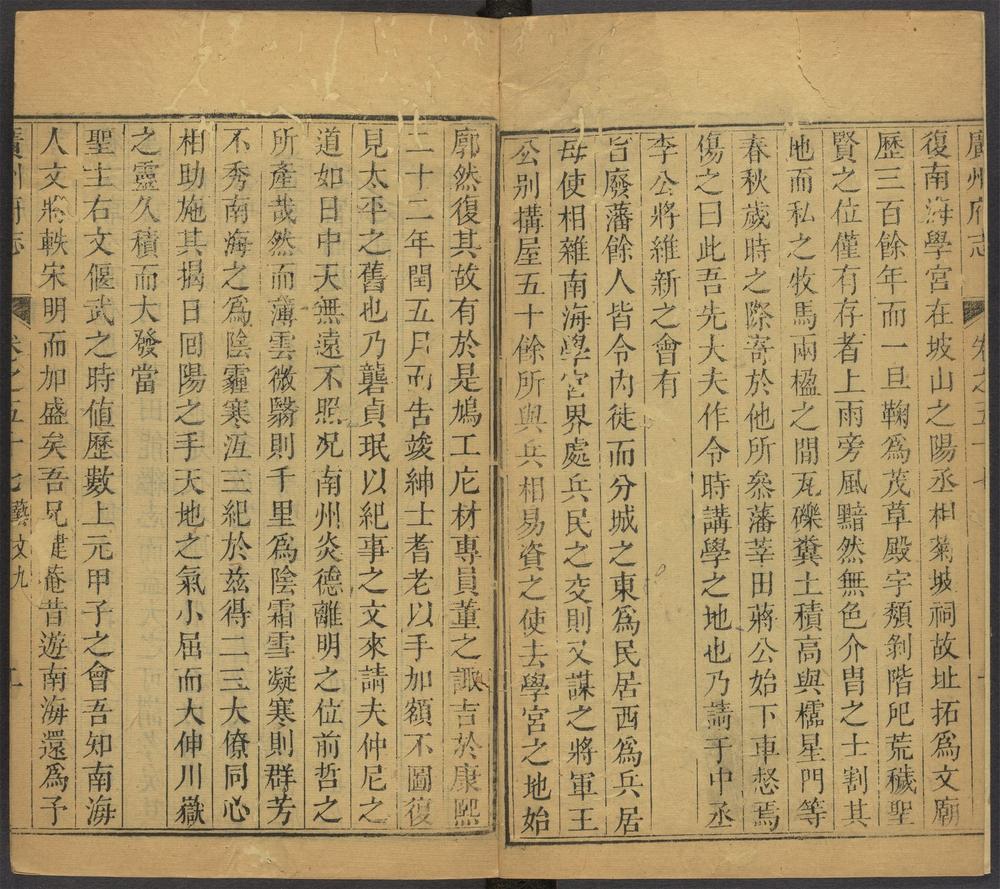 廣州府志 卷之五十七
復南海學宮在坡山之陽丞相菊坡祠故址拓爲文廟
歷三百餘年而一旦鞠爲茂草殿宇頹剝階戺荒穢聖
賢之位僅有存者上雨旁風黯然無色介胄之士割其
地而私之牧馬兩楹之間瓦礫糞土積高與櫺星門等
春秋歲時之際寄於他所叅藩莘田蔣公始下車愁焉
傷之曰此吾先大夫作令時講學之地也乃請于中丞
李公將維新之會有
旨廢藩餘人皆令內徙而分城之東爲民居西爲兵居
毋使相雜南海學宮界處兵民之交則又謀之將軍王
公別搆屋五十餘所與兵相易資之使去學宮之地始
廓然復其故有於是鳩工庀材專員董之諏吉於康熙
二十二年閏五月而告竣紳士耆老以手加額不圖復
見太平之舊也乃礱貞珉以紀事之文來請夫仲尼之
道如日中天無遠不照况南州炎德離明之位前哲之
所產哉然而薄雲微翳則千里爲陰霜雪凝寒則群芳
不秀南海之爲陰霾寒沍三紀於兹得二三大僚同心
相助施其揭日回陽之手天地之氣小屈而大伸川嶽
之靈久積而大發當
聖主右文偃武之時値歷數上元甲子之會吾知南海
人文將軼宋明而加盛矣吾兄建菴昔遊南海還爲子
廣州府志 卷之五十七 藝文九 二